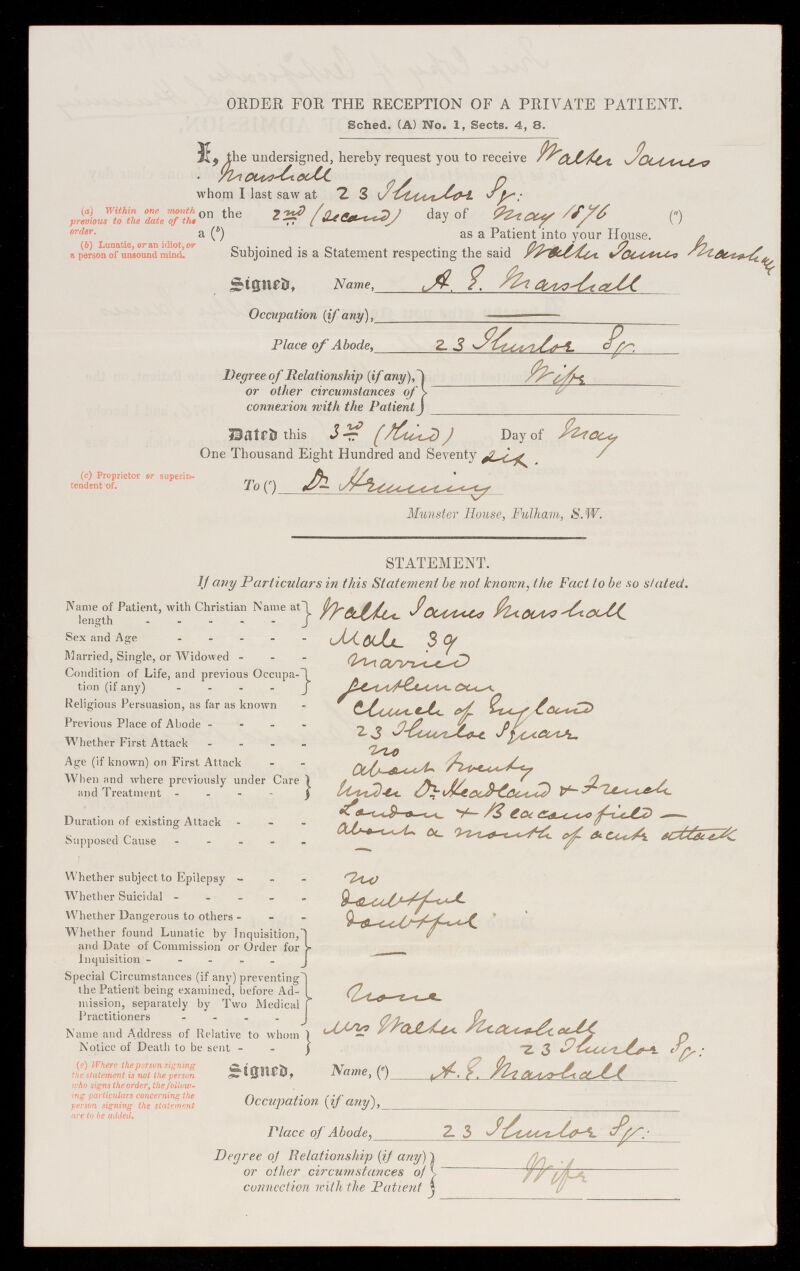 ORDER FOR THE RECEPTION OF A PRIVATE PATIENT.
Sched. (A) No. 1, Sects. 4, 8.
I, the undersigned, hereby request you to receive Walter James
Marshall
whom I last saw at 23 Thurloe Sq:
(a) Within one month previous to the date of the order.
on the 2nd (second) day of May 1876 (a)
a (b) as a Patient into your House.
(b) Lunatic, or an idiot, or a person of unsound mind.
Subjoined is a Statement respecting the said Walter James Marshall
Signed, Name, A. E. Marshall
Occupation (if any),
Place of Abode, 23 Thurloe Sq.
Degree of Relationship (if any), or other circumstances of connexion with the Patient } Wife
Dated this 3rd (Third) Day of May
One Thousand Eight Hundred and Seventy six.
(c) Proprietor or superintendent of.
To (c) Dr Hemming
Munster House, Fulham, S.W.
STATEMENT.
If any Particulars in this Statement be not known, the Fact to be so stated.
Name of Patient, with Christian Name at length - - - - - } Walter James Marshall
Sex and Age - - - - - Male 39
Married, Single, or Widowed - - - Married
Condition of Life, and previous Occupation (if any) - - - - } Gentleman
Religious Persuasion, as far as known - Church of England
Previous Place of Abode - - - - 23 Thurloe Square
Whether First Attack - - - - No
Age (if known) on First Attack - - About twenty
When and where previously under Care and Treatment - - - - } Under Dr. Headland & French
London & Beaconsfield —
Duration of existing Attack - - - About a month of acute attack
Supposed Cause - - - - - —
Whether subject to Epilepsy - - - No
Whether Suicidal - - - - - Doubtful
Whether Dangerous to others - - - Doubtful
Whether found Lunatic by Inquisition, and Date of Commission or Order for Inquisition - - - - - } —
Special Circumstances (if any) preventing the Patient being examined, before Admission, separately by Two Medical Practitioners - - - - } None
Name and Address of Relative to whom Notice of Death to be sent - - } Mrs Walter Marshall
23 Thurloe Sq:
(e) Where the person signing the statement is not the person who signs the order, the following particulars concerning the person signing the statement are to be added.
Signed, Name, (e) A. E. Marshall
Occupation (if any),
Place of Abode, 23 Thurloe Sq:
Degree of Relationship (if any) or other circumstances of connection with the Patient } Wife